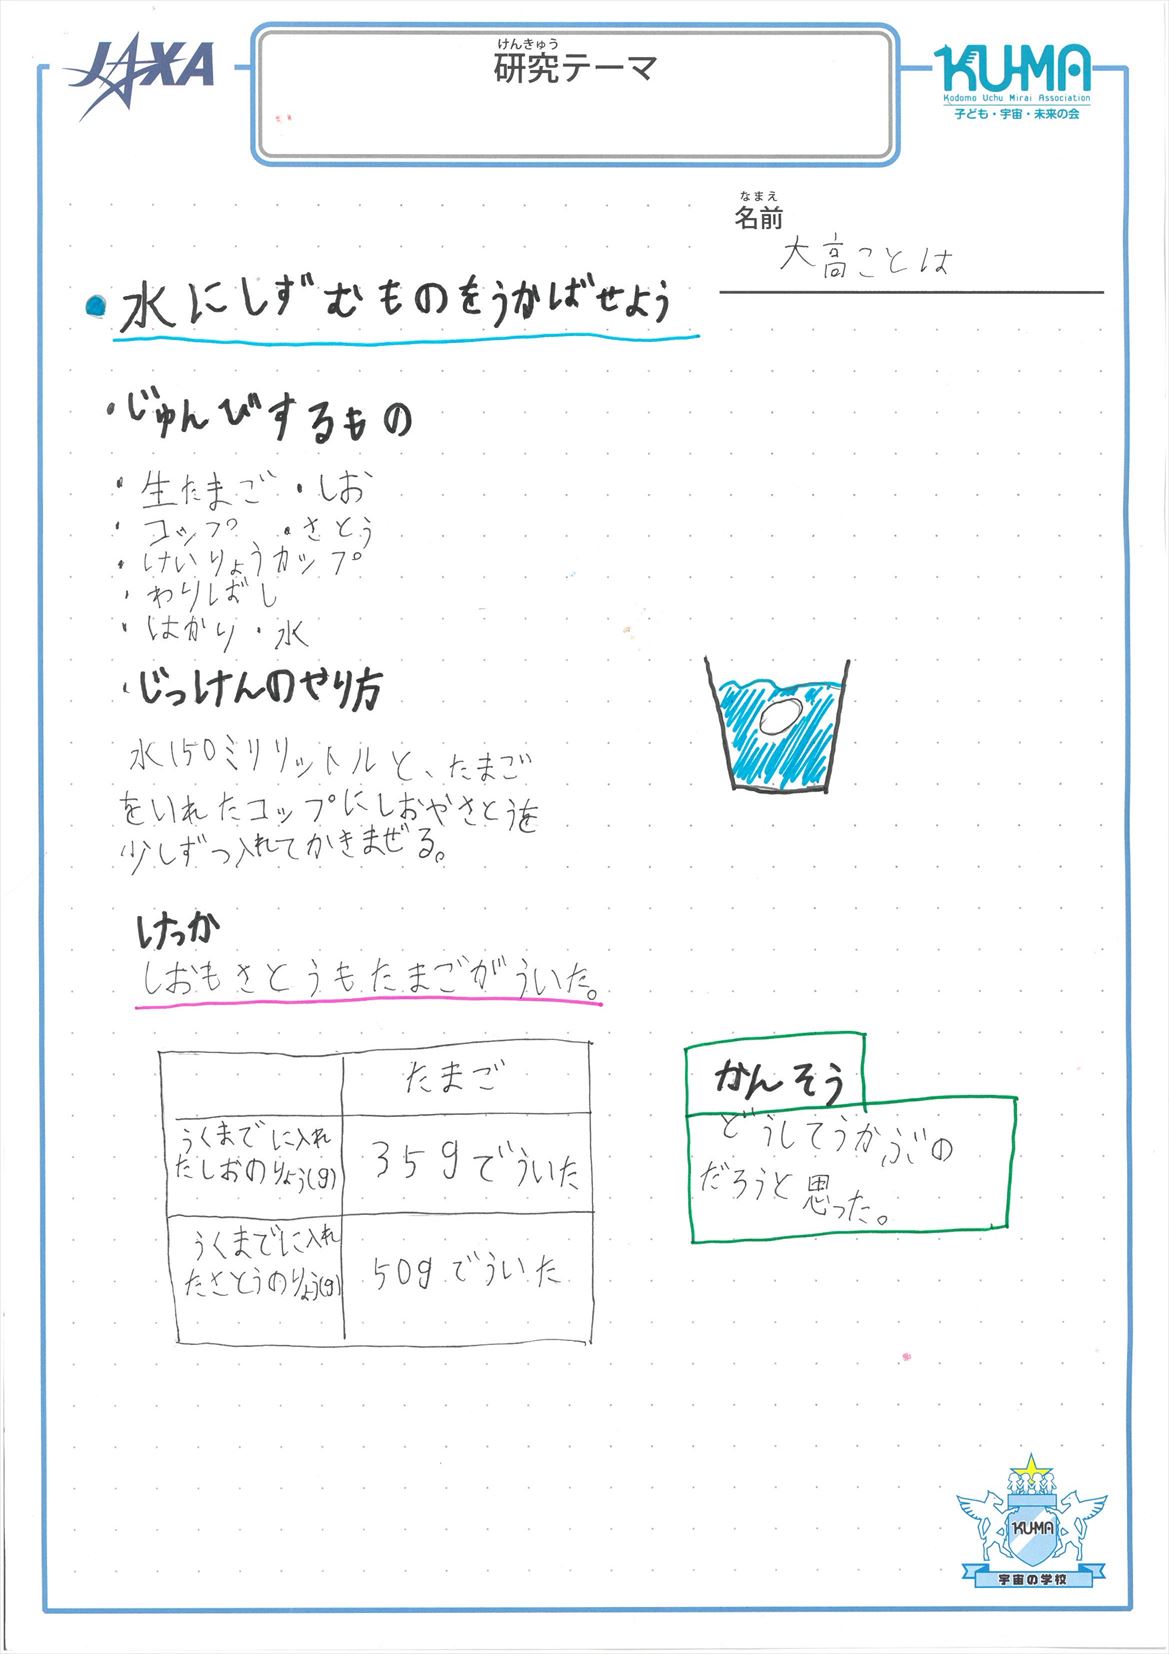 JAXA
けんきゅう
研究テーマ
KU-MA
Kodomo Uchu Mirai Association
子ども・宇宙・未来の会
なまえ
名前
大高ことは
水にしずむものをうかばせよう
・じゅんびするもの
・生たまご ・しお
・コップ ・さとう
・けいりょうカップ
・わりばし
・はかり ・水
・じっけんのやり方
水150ミリリットルと、たまご
をいれたコップにしおやさとうを
少しずつ入れてかきまぜる。
けっか
しおもさとうもたまごがういた。
たまご
うくまでに入れ
たしおのりょう(g)
35gでういた
うくまでに入れ
たさとうのりょう(g)
50gでういた
かんそう
どうしてうかぶの
だろうと思った。
KUMA
宇宙の学校